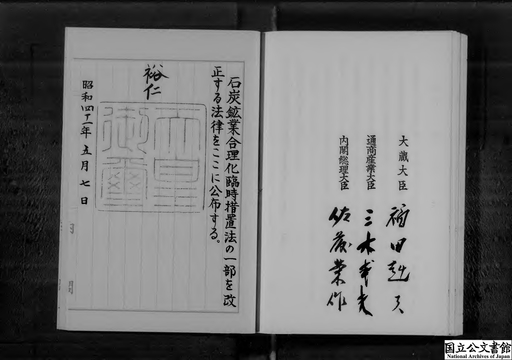 石炭鉱業合理化臨時措置法の一部を改
正する法律をここに公布する。
裕仁
天皇
御璽
昭和四十一年五月七日
大蔵大臣 福田赳夫
通商産業大臣 三木武夫
内閣総理大臣 佐藤榮作
国立公文書館
National Archives of Japan